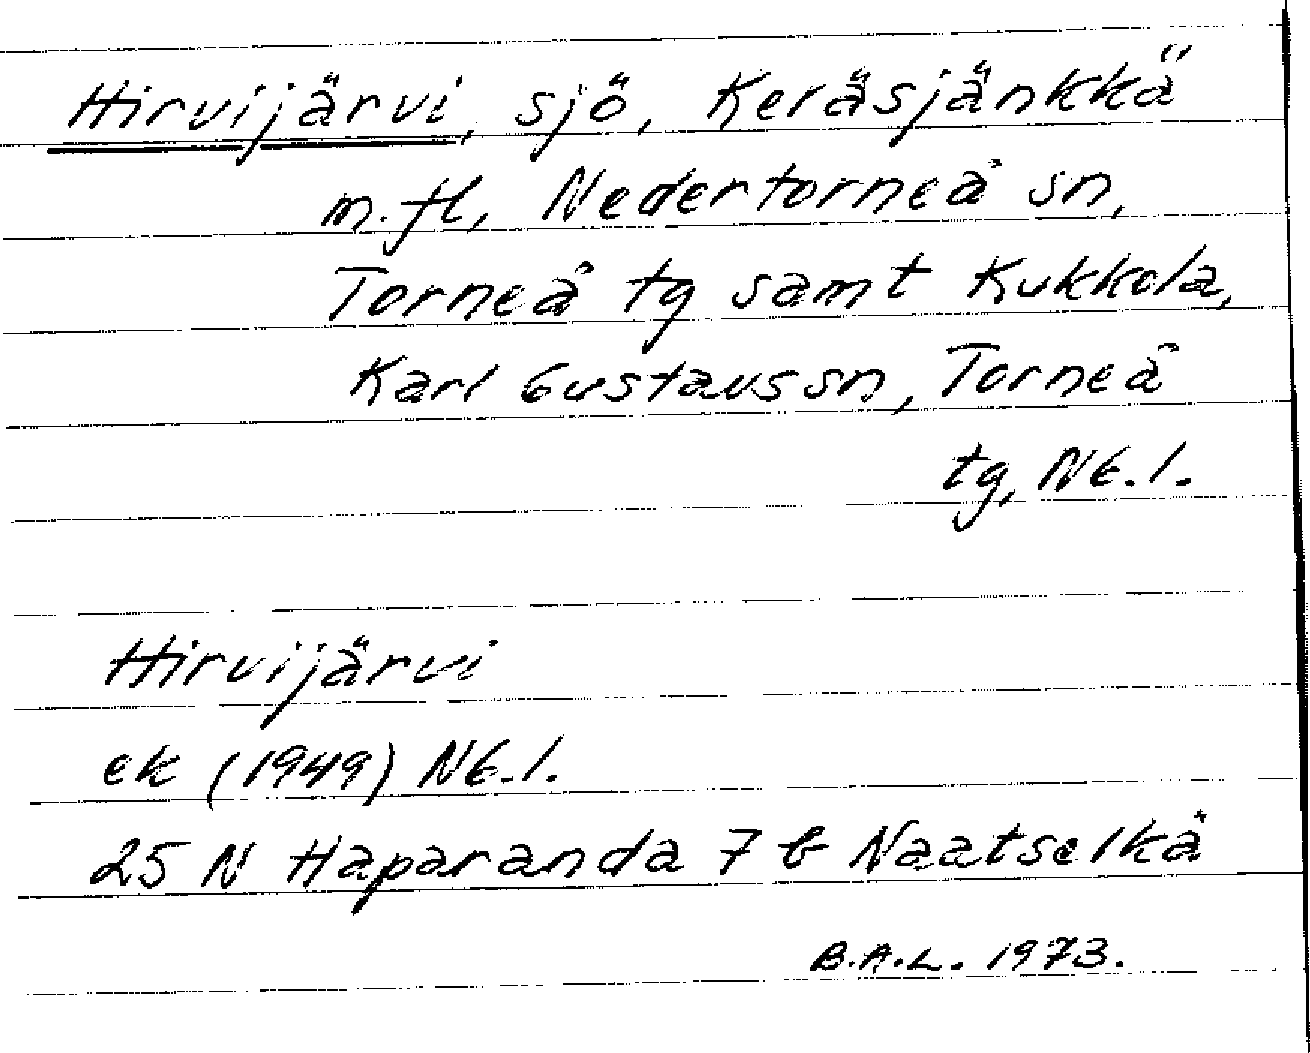 Hirvijärvi, sjö, Keräsjänkkä
m.fl., Nedertorneå sn,
Torneå tg samt Kukkola,
Karl Gustavs sn, Torneå
tg, Nb.l.
Hirvijärvi
ek (1949) Nb.l.
25 N Haparanda 7 b Naatselkä
B.A.L. 1973.